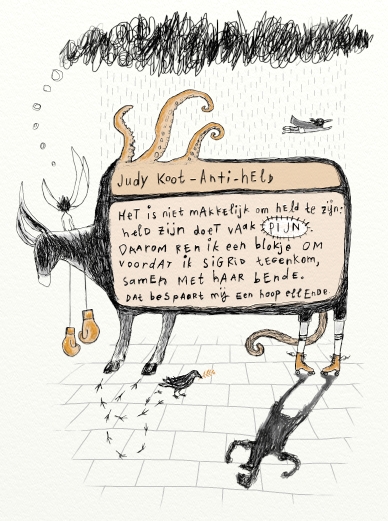 Judy Koot-Anti-held
Het is niet makkelijk om held te zijn:
held zijn doet vaak PIJN.
Daarom ren ik een blokje om
voordat ik Sigrid tegenkom,
samen met haar bende.
Dat bespaart mij een hoop ellende.